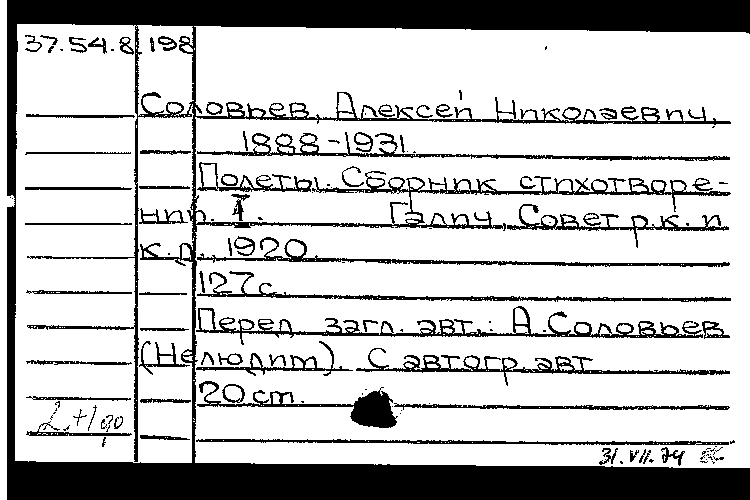 37.54.8.198
Соловьев, Алексей Николаевич,
1888-1931.
Полеты. Сборник стихотворе-
ний. I. Галич, Совет р.к. и
к.д., 1920.
127с.
Перед загл. авт.: А. Соловьев
(Нелюдим). С автогр. авт
20 см.
31.VII.74